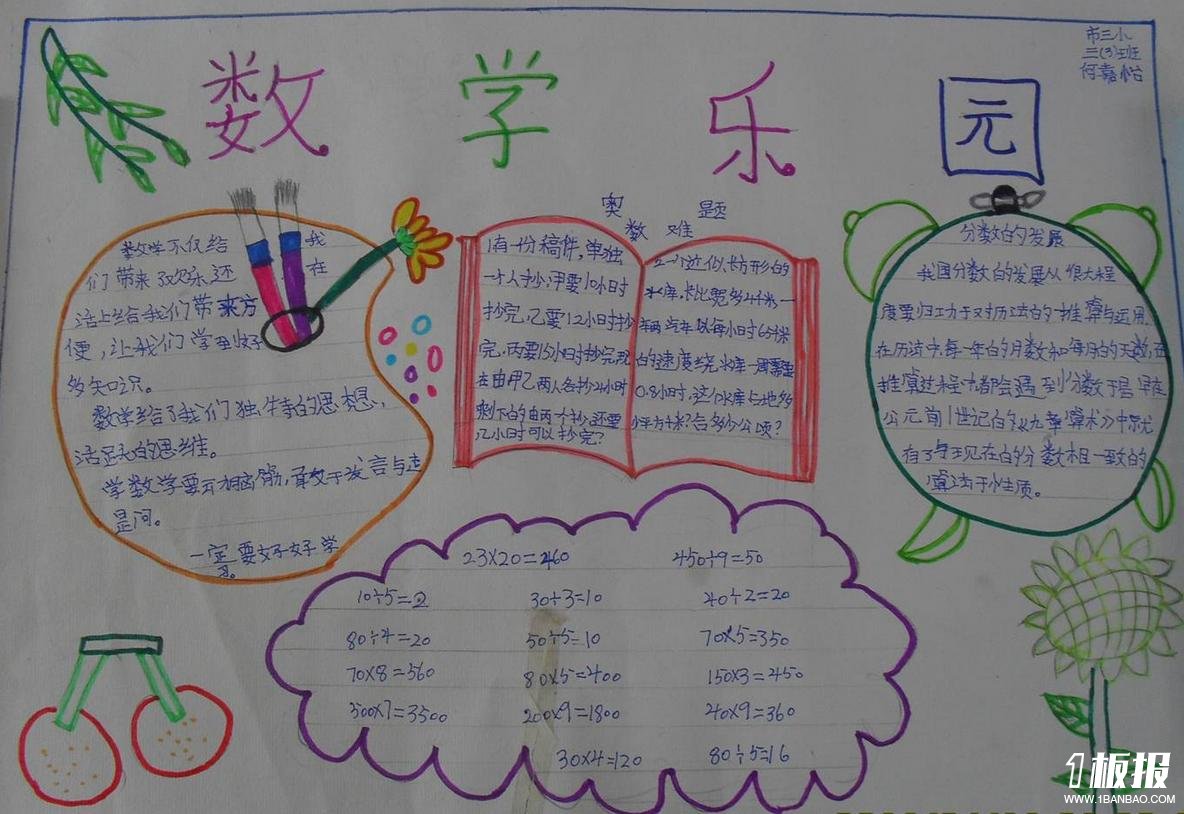 市三小
三(3)班
何嘉怡
数学乐元
数学不仅给我
们带来了欢乐,还在
活上给我们带来方
便,让我们学到好
多知识。
数学给了我们独特的思想,
活跃的思维。
学数学要开脑筋,敢于发言与
提问。
一定要好好学
习。
奥数难题
1有一份稿件,单独
一个人抄,甲要10小时
抄完,乙要12小时抄
完,丙要15小时抄完,现
在由甲乙两人各抄2小时
剩下的由两个抄,还要
几小时可以抄完?
2一个近似长方形的
水库,长比宽多4千米,一
的速度绕水库一周需要
0.8小时,这个水库占地多
少平方千米?合多少公顷?
分数的发展
我国分数的发展从很大程
度要归功于对历法的推算与运用
在历法中,每一年的月数和每月的天数,在
推算过程中都会遇到分数,于是早在
公元前1世记的《九章算术》中就
有了与现在的分数相一致的
算法于性质。
23×20=460 450÷9=50
10÷5=2 30÷3=10 40÷2=20
80÷4=20 50÷5=10 70×5=350
70×8=560 80×5=400 150×3=450
500×7=3500 200×9=1800 40×9=360
30×4=120 80÷5=16
1板报
WWW.1BANBAO.COM